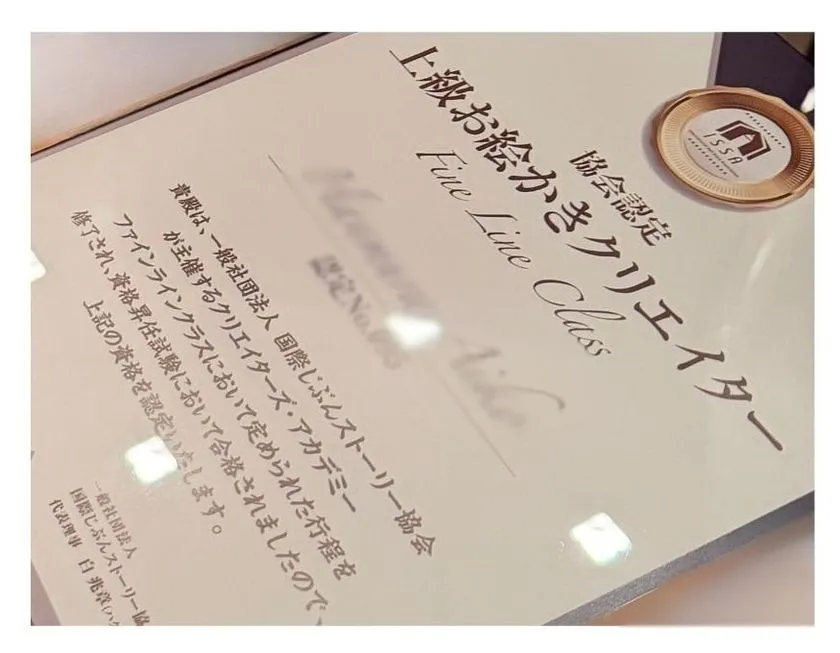 協会認定
上級お絵かきクリエイター
Fine Line Class
認定No.
貴殿は、一般社団法人 国際じぶんストーリー協会
が主催するクリエイターズ・アカデミー
ファインラインクラスにおいて定められた行程を
修了され、資格昇任試験において合格されましたので、
上記の資格を認定いたします。
一般社団法人
国際じぶんストーリー協
代表理事 白 兆章
JSSA